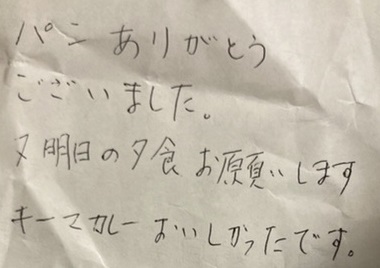 パンありがとう
ございました。
又明日の夕食お願いします
キーマカレーおいしかったです。